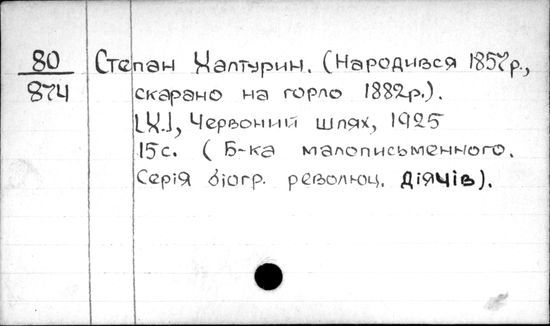 80 Степан Халтурин. (Народився 1857р.,
874 скарано на горло 1882р.).
[Х.], Червоний шлях, 1925
15с. (Б-ка малописьменного.
Серія біогр. революц. діячів).